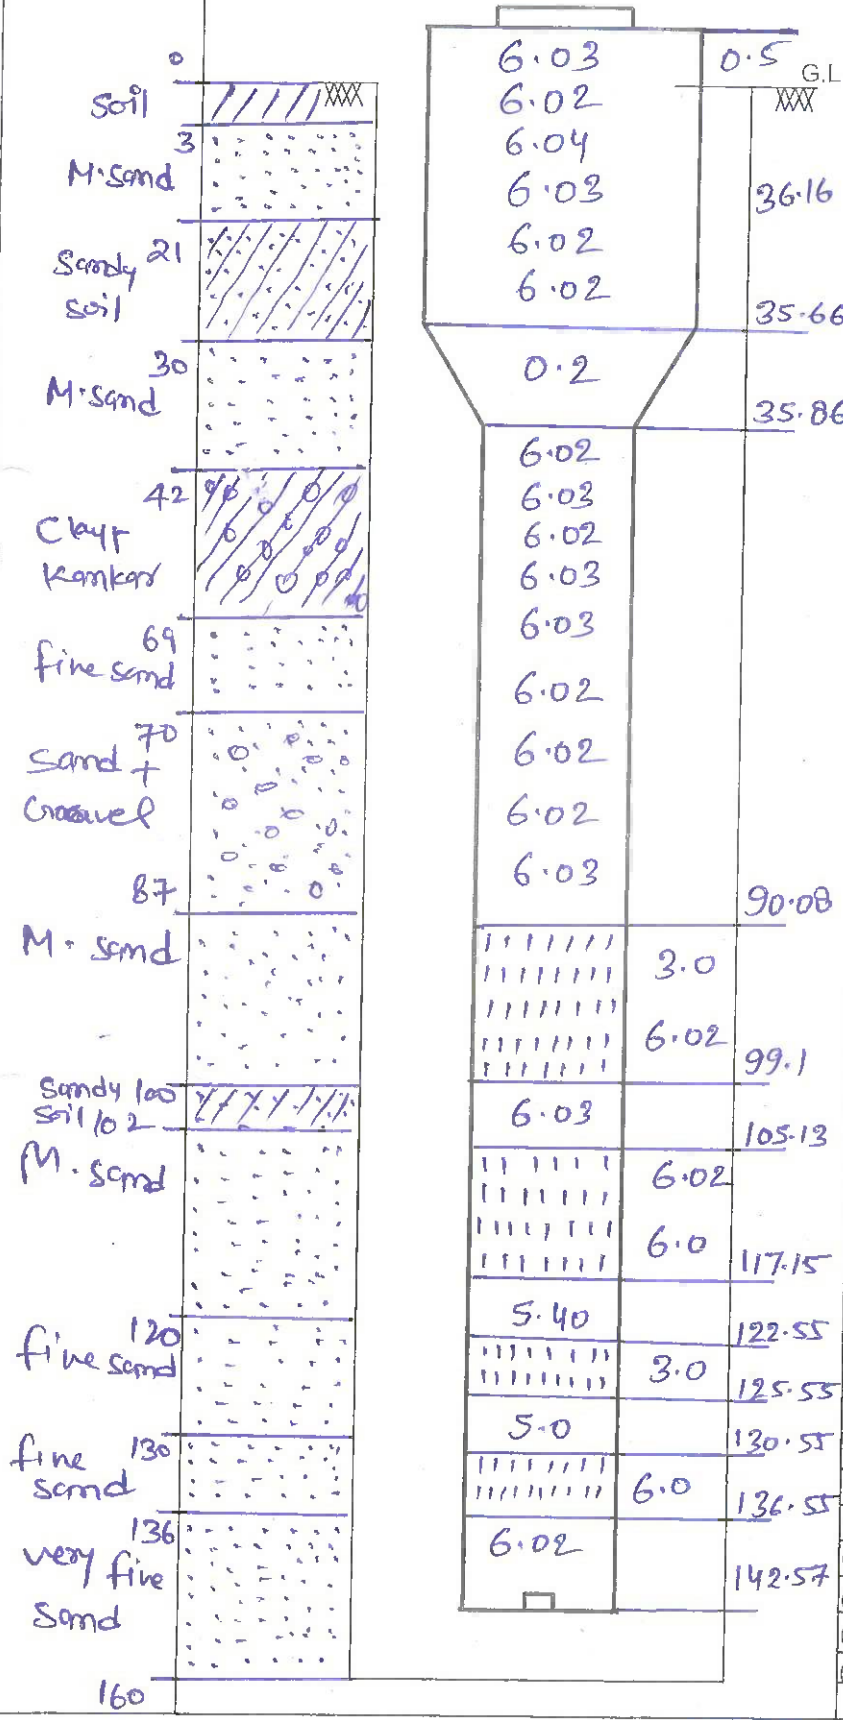 0
soil
3
M.sand
21
Sandy
soil
30
M.sand
42
Clay+
Kankar
69
fine sand
70
Sand +
Graavel
87
M. sand
Sandy 100
soil 102
M. sand
120
fine sand
130
fine
sand
136
very fine
sand
160
6.03
6.02
6.04
6.03
6.02
6.02
0.2
6.02
6.03
6.02
6.03
6.03
6.02
6.02
6.02
6.03
3.0
6.02
6.03
6.02
6.0
5.40
3.0
5.0
6.0
6.02
0.5
G.L
36.16
35.66
35.86
90.08
99.1
105.13
117.15
122.55
125.55
130.55
136.55
142.57